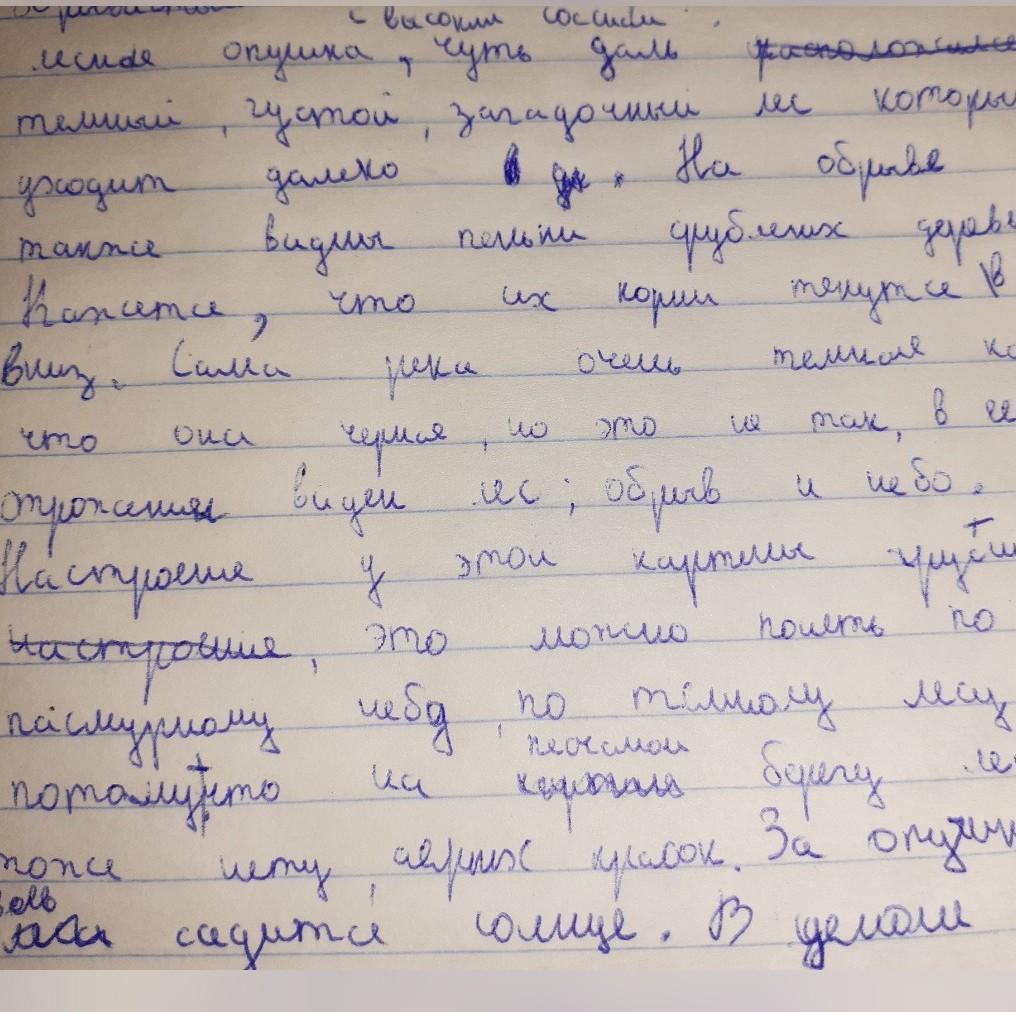 с высокими соснами.
лесная опушка, чуть даль расположился
темный, густой, загадочный лес который
уходит далеко в . На обрыве
также видны пеньки срубленых деревь
Кажется, что их корни тянутся в
вниз. Сама река очень темная ка
что она черная, но это не так, в ее
отроженият виден лес, обрыв и небо.
Настроение у этой картины груст
настроение, это можно понять по
пасмурному небу, по тёмному лесу
песчаном
потому что на берегу ле
тоже нету, ярких красок. За опушк
садится солнце. В целом